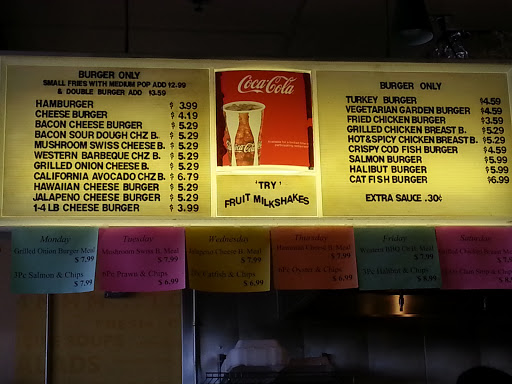 BURGER ONLY
SMALL FRIES WITH MEDIUM POP ADD $2.99
& DOUBLE BURGER ADD $3.59
HAMBURGER $ 3.99
CHEESE BURGER $ 4.19
BACON CHEESE BURGER $ 5.29
BACON SOUR DOUGH CHZ B. $ 5.29
MUSHROOM SWISS CHEESE B. $ 5.29
WESTERN BARBEQUE CHZ B. $ 5.29
GRILLED ONION CHEESE B. $ 5.29
CALIFORNIA AVOCADO CHZ B. $ 6.79
HAWAIIAN CHEESE BURGER $ 5.29
JALAPENO CHEESE BURGER $ 5.29
1-4 LB CHEESE BURGER $ 3.99
Coca-Cola
Coca-Cola
'TRY'
FRUIT MILKSHAKES
BURGER ONLY
TURKEY BURGER $4.59
VEGETARIAN GARDEN BURGER $4.59
FRIED CHICKEN BURGER $3.59
GRILLED CHICKEN BREAST B. $5.29
HOT&SPICY CHICKEN BREAST B. $5.29
CRISPY COD FISH BURGER $4.59
SALMON BURGER $5.99
HALIBUT BURGER $5.99
CAT FISH BURGER $6.99
EXTRA SAUCE .30¢
Monday
Grilled Onion Burger Meal
$ 7.99
3Pc Salmon & Chips
$ 7.99
Tuesday
Mushroom Swiss B. Meal
$ 7.99
6Pc Prawns & Chips
$ 6.99
Wednesday
Jalapeno Cheese B. Meal
$ 7.99
Catfish & Chips
$ 6.99
Thursday
Hawaiian Cheese B. Meal
$ 7.99
Oyster & Chips
$ 6.99
Friday
Western BBQ Chz B. Meal
$ 7.99
3Pc Halibut & Chips
$ 8.99
Saturday
Meal